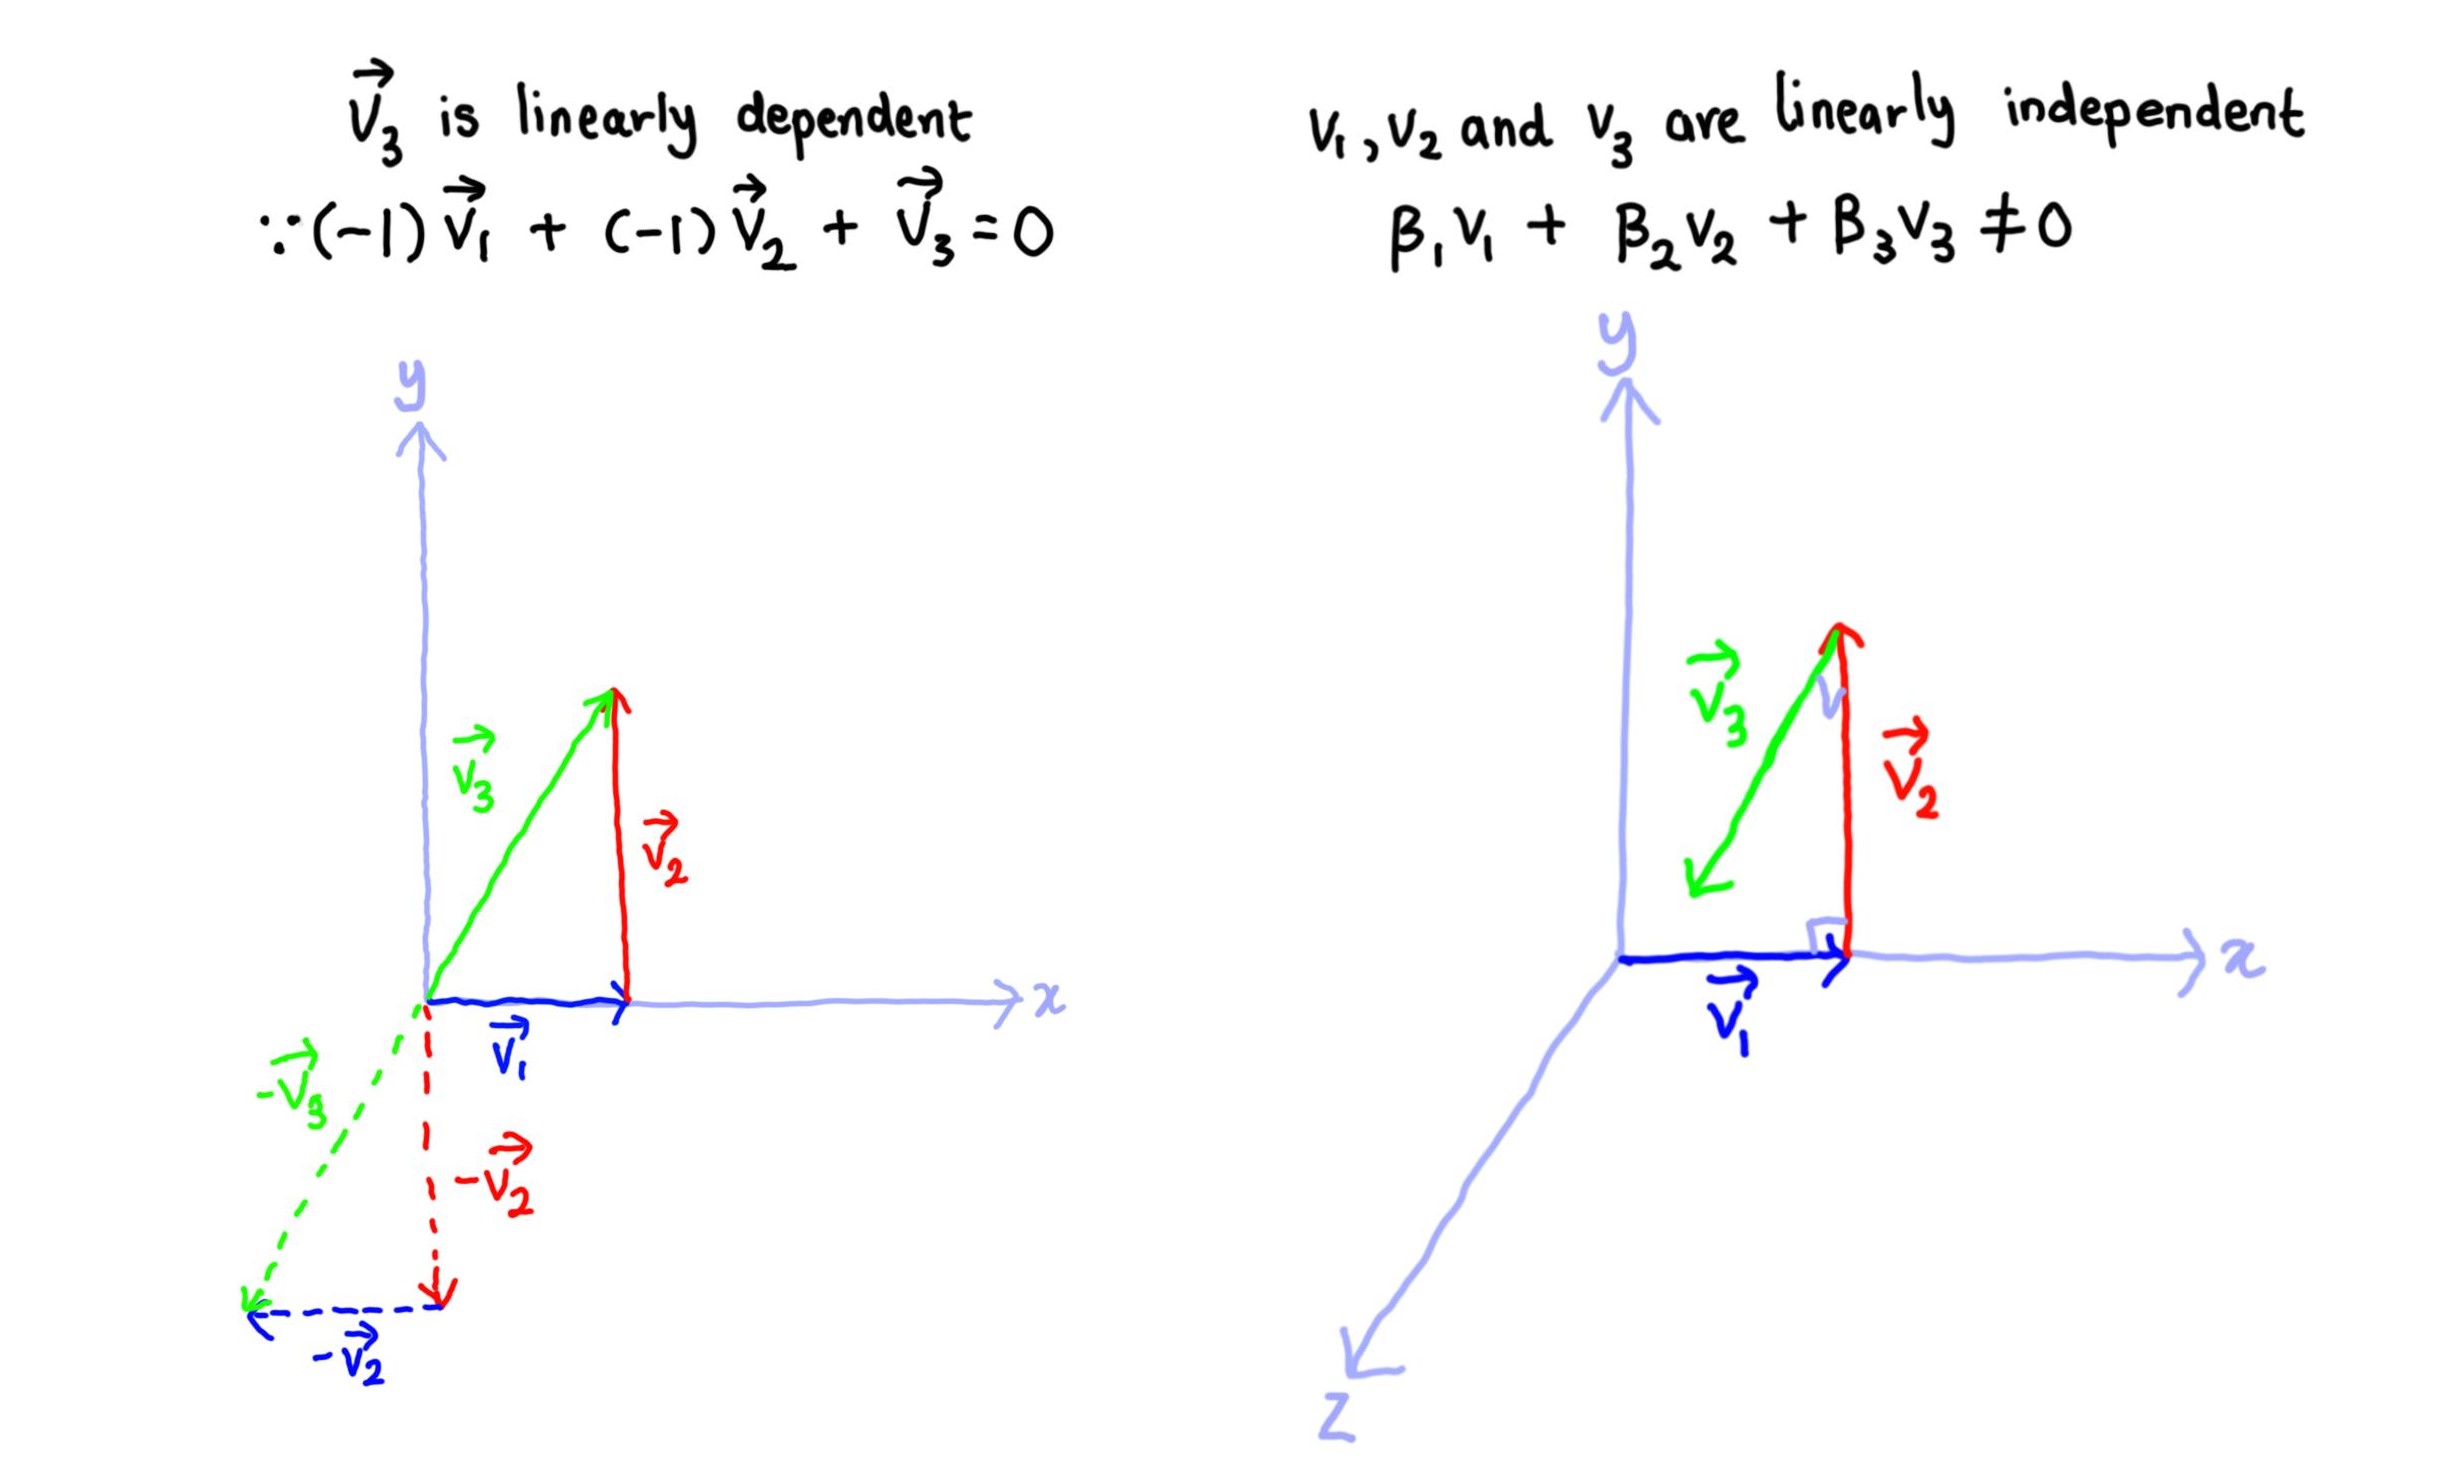 V⃗₃ is linearly dependent
∵(-1)V⃗₁ + (-1)V⃗₂ + V⃗₃ = 0
y
V⃗₃
V⃗₂
x
V⃗₁
-V⃗₃
-V⃗₂
-V⃗₂
V₁, V₂ and V₃ are linearly independent
β₁V₁ + β₂V₂ + β₃V₃ ≠ 0
y
V⃗₃
V⃗₂
x
V⃗₁
z